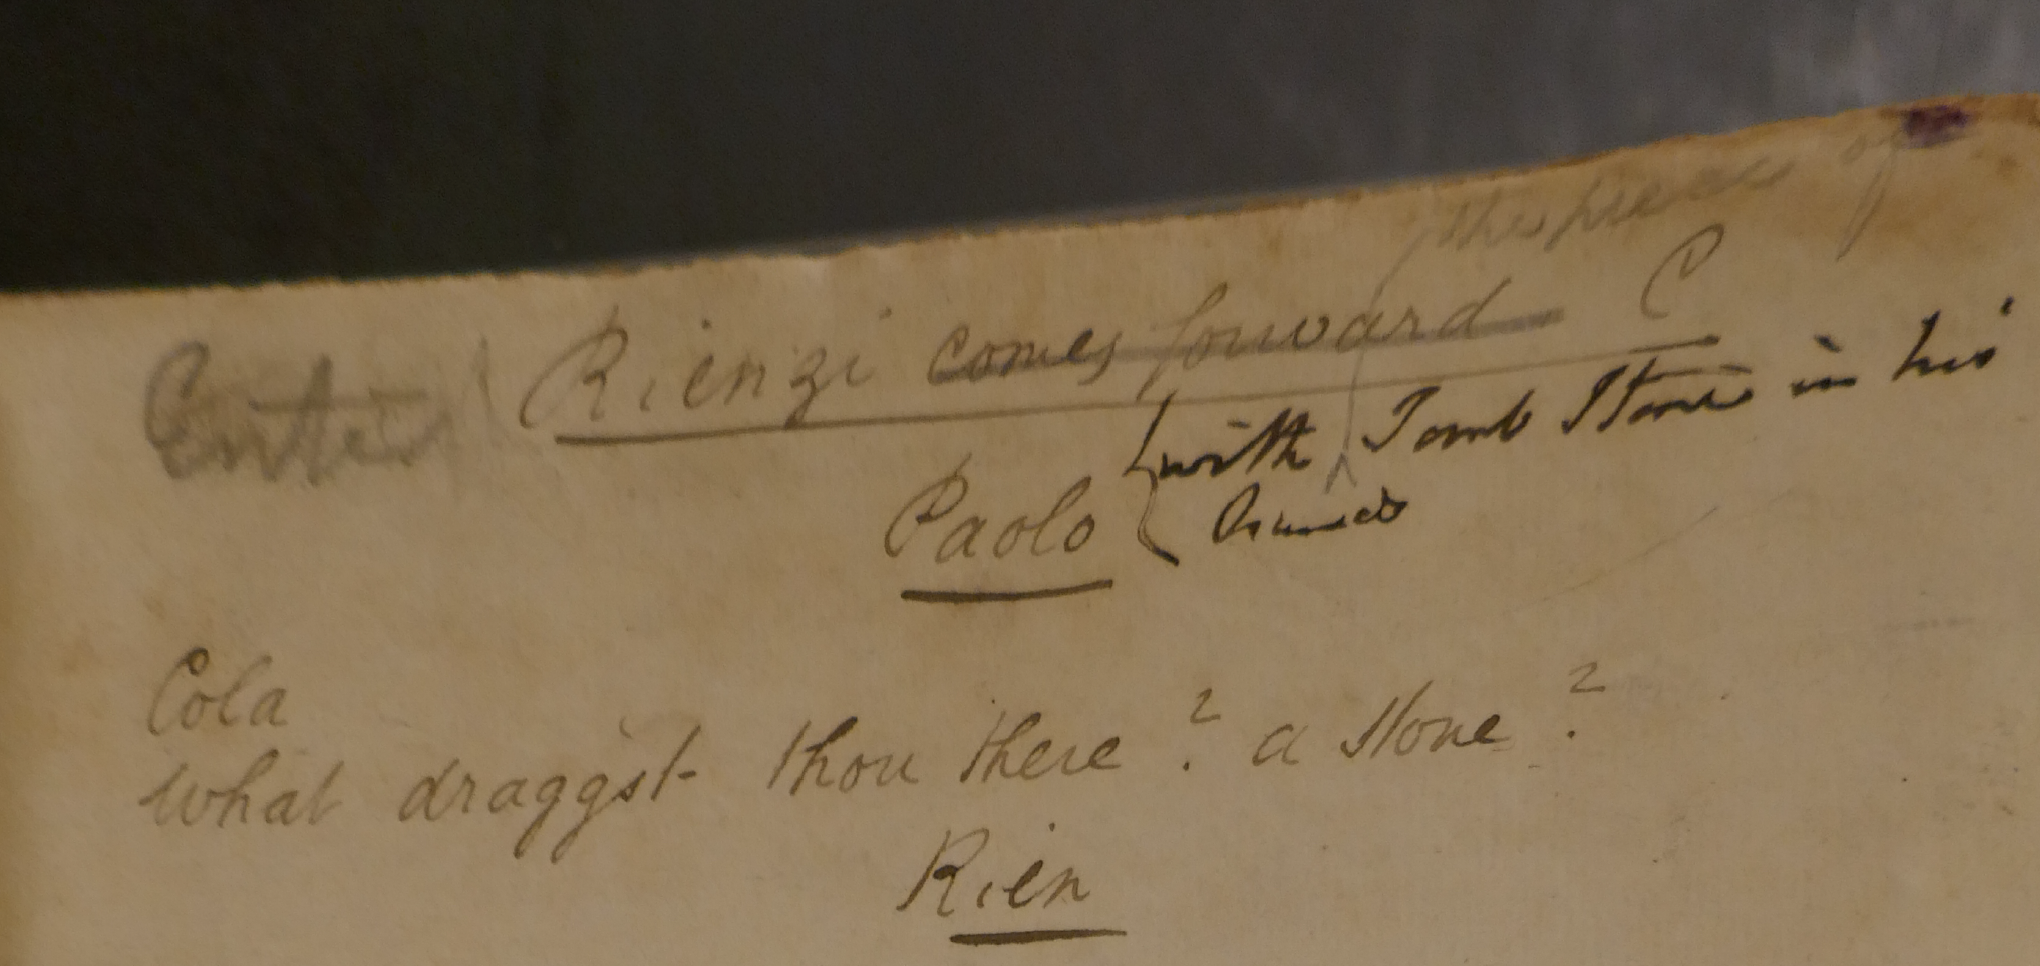 the piece of
Enter Rienzi comes forward C
with Tomb Stone in his
Paolo hands
Cola
What draggst thou there? a stone?
Rien